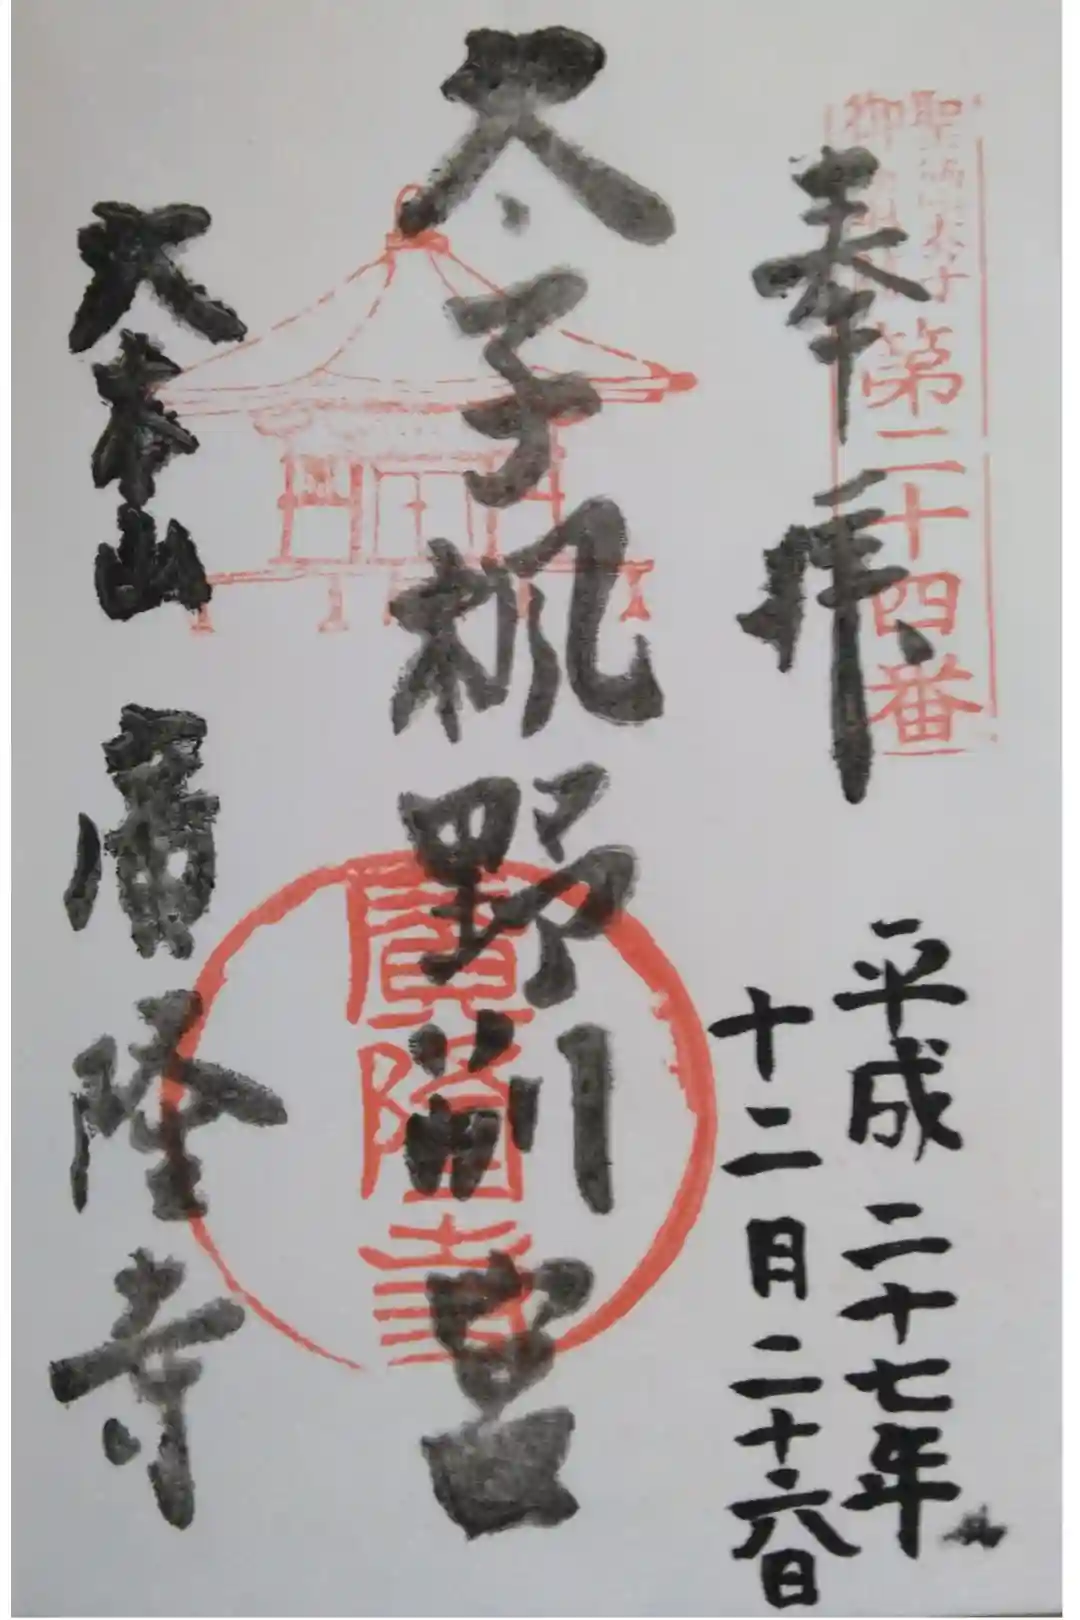 聖徳太子
御
第二十四番
奉拝
平成二十七年
十二月二十六日
太子楓野別宮
廣隆寺
大本山
廣隆寺